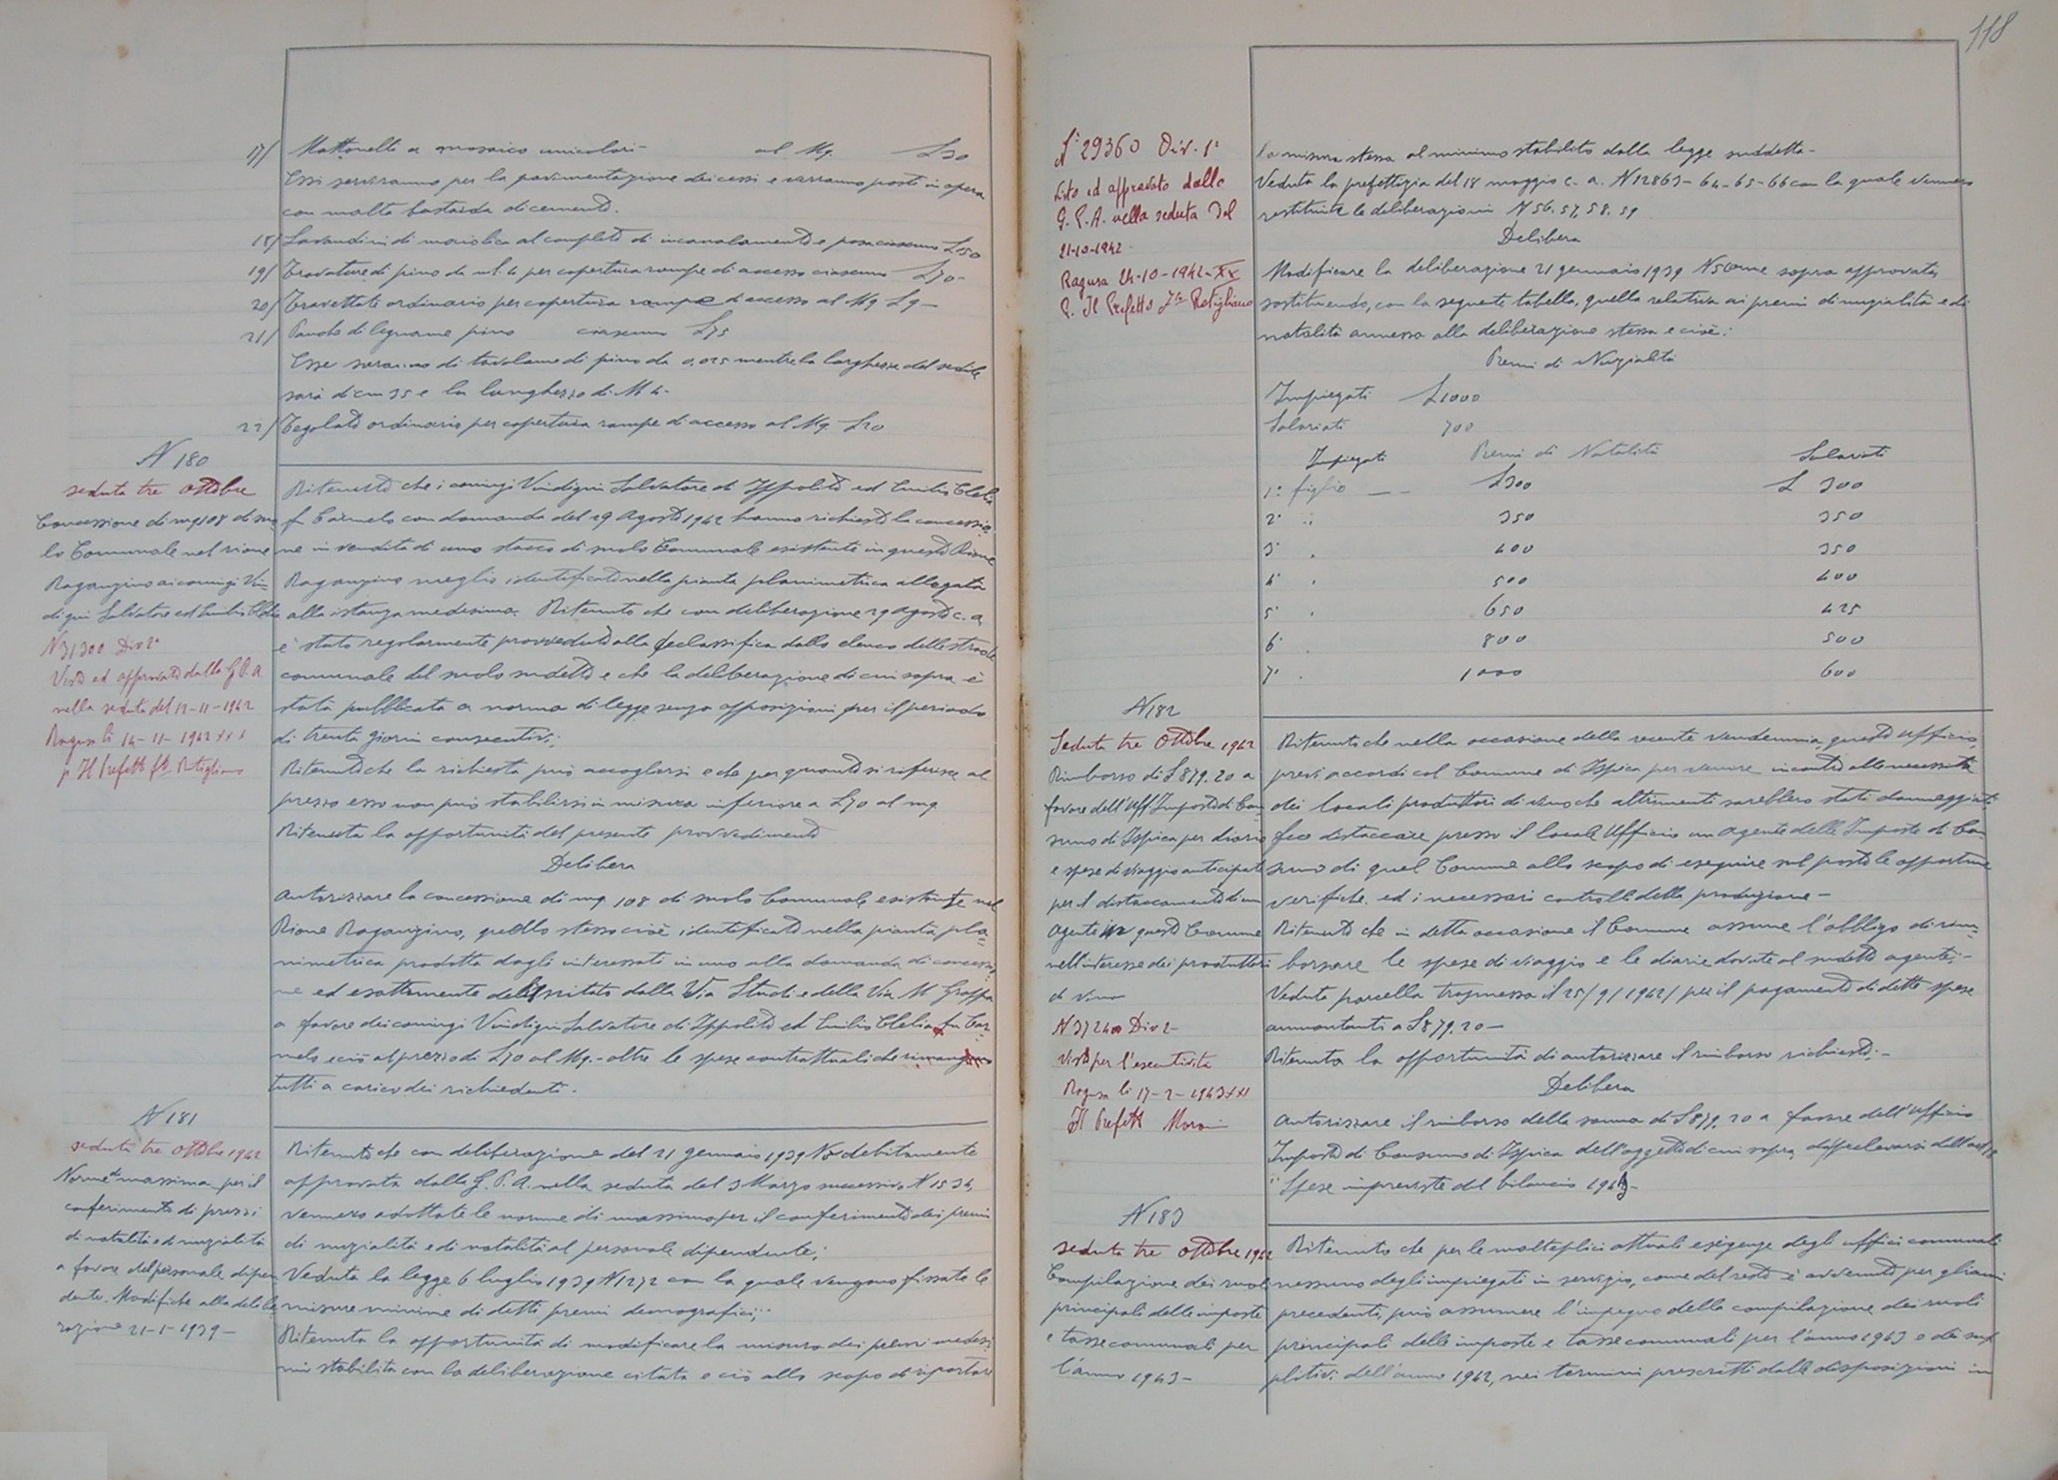 17/ Mattonelle a mosaico unicolori - al Mq. L30
Essi serviranno per la pavimentazione dei cessi e verranno posti in opera
con malta bastarda di cemento.
18/ Lavandini di maiolica al completo di incanalamento e posa ciascuno L50
19/ Travature di pino da ml. 4 per copertura rampe di accesso ciascuno L70-
20/ Travettato ordinario per copertura rampe di accesso al Mq L9-
21/ Panche di legname pino ciascuno L75
Esse saranno di tavolame di pino da 0,025 mentre la larghezza del sedile
sarà di cm 35 e la lunghezza di M 4-
22/ Tegolato ordinario per copertura rampe di accesso al Mq. L20
N 180
seduta tre Ottobre
Concessione di mq 108 di suo
lo Comunale nel rione
Raganzino ai coniugi Vin
digni Salvatore ed Emilio Clelia
N 31300 Div 2ª
Visto ed approvato dalla G.P.A.
nella seduta del 12-11-1942
Ragusa li 14-11-1942 XXI
p. Il Prefetto fto Rutigliano
Ritenuto che i coniugi Vindigni Salvatore di Ippolito ed Emilio Clelia
fu Carmelo con domanda del 29 Agosto 1942 hanno richiesto la concessio
ne in vendita di uno stacco di suolo Comunale esistente in questo Rione
Raganzino meglio identificato nella pianta planimetrica allegata
alla istanza medesima. Ritenuto che con deliberazione 29 Agosto c.a.
è stato regolarmente provveduto alla declassifica dallo elenco delle strade
comunale del suolo sudetto e che la deliberazione di cui sopra è
stata pubblicata a norma di legge senza opposizioni per il periodo
di trenta giorni consecutivi;
Ritenuto che la richiesta può accogliersi e che per quanto si riferisce al
prezzo esso non può stabilirsi in misura inferiore a L70 al mq
Ritenuta la opportunità del presente provvedimento
Delibera
Autorizzare la concessione di mq. 108 di suolo Comunale esistente nel
Rione Raganzino, quello stesso cioè identificato nella pianta pla=
nimetrica prodotta dagli interessati in uno alla domanda di concessio
ne ed esattamente delimitato dalla Via Studi e della Via M Grappa
a favore dei coniugi Vindigni Salvatore di Ippolito ed Emilio Clelia fu Car=
melo e ciò al prezzo di L70 al Mq.- oltre le spese contrattuali che rimangono
tutti a carico dei richiedenti.
N 181
seduta tre Ottobre 1942
Norme di massima per il
conferimento di premi
di natalità e di nuzialità
a favore del personale dipen
dente. Modifiche alla delibe
razione 21-1-1939-
Ritenuto che con deliberazione del 21 gennaio 1939 N 5 debitamente
approvata dalla G.P.A. nella seduta del 3 Marzo successivo N 1534,
vennero adottate le norme di massima per il conferimento dei premi
di nuzialità e di natalità al personale dipendente;
Veduta la legge 6 luglio 1939 N 1272 con la quale vengono fissate le
misure minime di detti premi demografici;
Ritenuta la opportunità di modificare la misura dei premi medesi
mi stabilita con la deliberazione citata e ciò allo scopo di riportare
118
N 29360 Div. 1ª
Visto ed approvato dalla
G.P.A. nella seduta del
21-10-1942-
Ragusa 24-10-1942-XX
P. Il Prefetto fto Rutigliano
la misura stessa al minimo stabilito dalla legge suddetta-
Veduta la prefettizia del 18 maggio c.a. N 12863-64-65-66 con la quale vennero
restituite le deliberazioni N 56. 57, 58. 59
Delibera
Modificare la deliberazione 21 gennaio 1939 N 5 come sopra approvata,
sostituendo, con la seguente tabella, quella relativa ai premi di nuzialità e di
natalità annessa alla deliberazione stessa e cioè:
Premi di Nuzialità
Impiegati L1000
Salariati 700
Impiegati Premi di Natalità Salariati
1° figlio -- L300 L 300
2° " 350 350
3° " 400 350
4° " 500 400
5° " 650 425
6° " 800 500
7° " 1000 600
N 182
Seduta tre Ottobre 1942
Rimborso di L 879.20 a
favore dell'Uff. Imposte di Con
sumo di Ispica per diarie
e spese di viaggio anticipate
per il distaccamento di un
agente in questo Comune
nell'interesse dei produttori
di vino
N 37240 Div 2-
Visto per l'esecutività
Ragusa li 17-2-1943 XXI
Il Prefetto
Ritenuto che nella occasione della recente vendemmia, questo Ufficio,
previ accordi col Comune di Ispica per venire incontro alle necessità
dei locali produttori di vino che altrimenti sarebbero stati danneggiati
fece distaccare presso il locale Ufficio un Agente delle Imposte di Con
sumo di quel Comune allo scopo di eseguire sul posto le opportune
verifiche ed i necessari controlli della produzione-
Ritenuto che in detta occasione il Comune assunse l'obbligo di rim=
borsare le spese di viaggio e le diarie dovute al sudetto agente;-
Veduta parcella trasmessa il 25/9/1942/ per il pagamento di dette spese
ammontanti a L879.20-
Ritenuta la opportunità di autorizzare il rimborso richiesto;-
Delibera
Autorizzare il rimborso della somma di L879.20 a favore dell'Ufficio
Imposte di Consumo di Ispica dell'oggetto di cui sopra, da prelevarsi dall'art
"Spese impreviste del bilancio 1943-
N 183
seduta tre Ottobre 1942
Compilazione dei ruoli
principali delle imposte
e tasse comunali per
l'anno 1943-
Ritenuto che per le molteplici attuali esigenze degli uffici comunali
nessuno degli impiegati in servizio, come del resto è avvenuto per gli anni
precedenti, può assumere l'impegno della compilazione dei ruoli
principali delle imposte e tasse comunali per l'anno 1943 e dei sup
pletivi dell'anno 1942, nei termini prescritti dalle disposizioni in